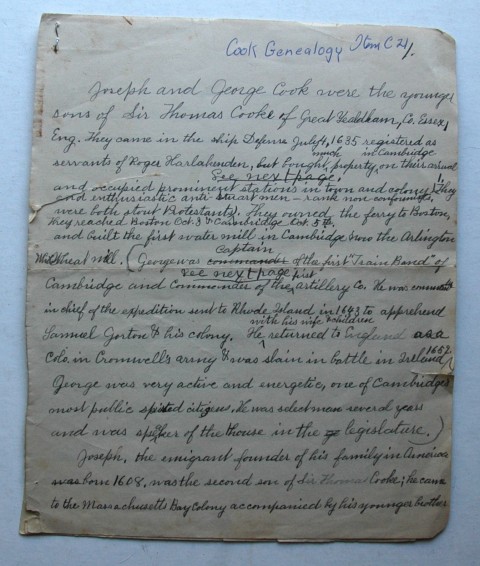 Cook Genealogy Item C 21/.
Joseph and George Cook were the younger
sons of Sir Thomas Cooke of Great Yeddham, Co. Essex,
Eng. They came in the ship Defense July 4, 1635 registered as
servants of Roger Harlakenden, but bought much property in Cambridge on their arrival
See next page.
and occupied prominent stations in town and colony. They
and enthusiastic anti-Stuart men - rank non conformists,
were both stout Protestants. They owned the ferry to Boston,
They reached Boston Oct. 3 & Cambridge Oct. 5th.
and built the first water mill in Cambridge now the Arlington
Wheat mill. (George was commander Captain of the first "Train Band" of
see next page first
Cambridge and Commander of the artillery Co. He was
in chief of the expedition sent to Rhode Island in 1643 to apprehend
Samuel Gorton & his colony. He returned with his wife & children to England as a
Col. in Cromwell's army & was slain in battle in Ireland 1652
George was very active and energetic, one of Cambridges
most public spirited citizens. He was selectman several years
and was speaker of the house in the legislature.)
Joseph, the emigrant founder of his family in America
was born 1608, was the second son of Sir Thomas Cooke; he came
to the Massachusetts Bay Colony accompanied by his younger brother